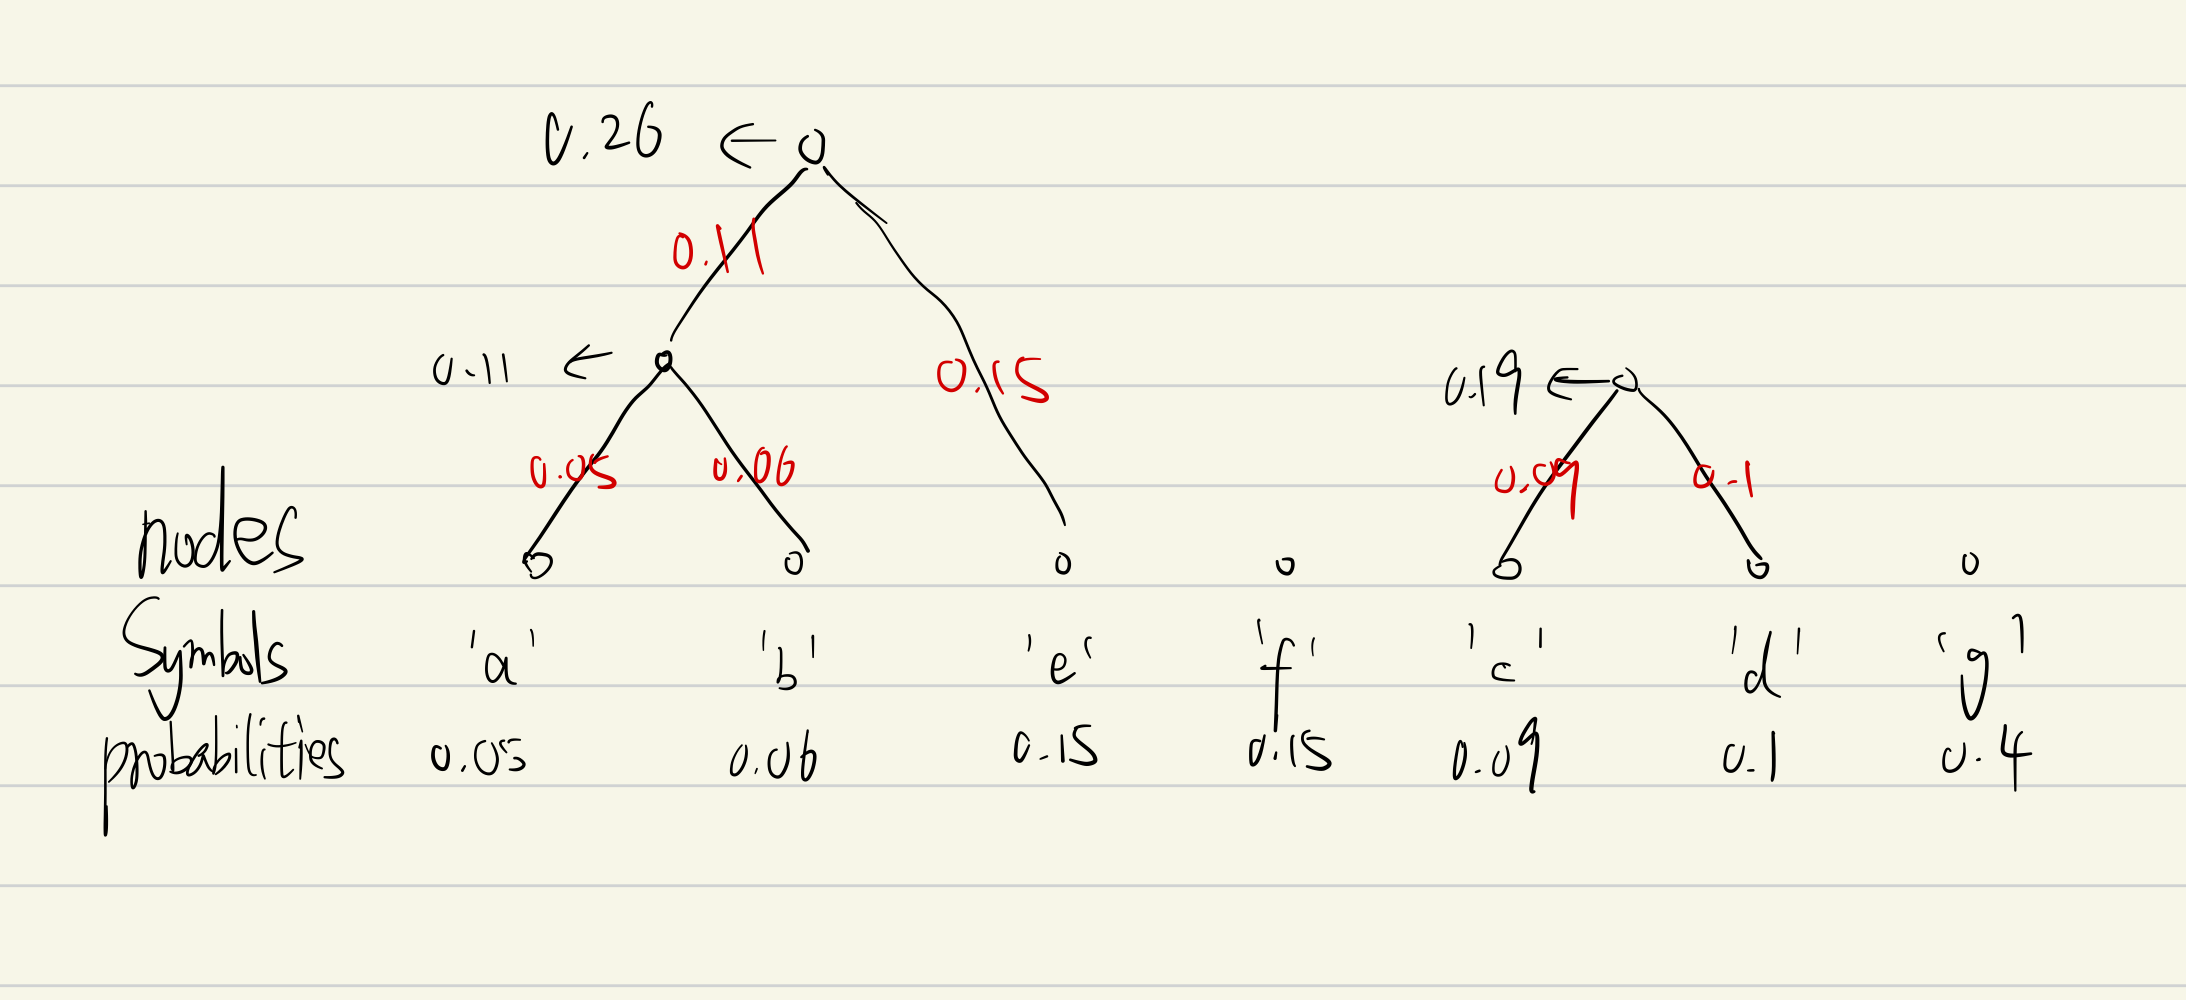 0.26 ←
0.11
0.15
0.11 ←
0.19 ←
0.05 0.06
0.09 0.1
nodes
Symbols 'a' 'b' 'e' 'f' 'c' 'd' 'g'
probabilities 0.05 0.06 0.15 0.15 0.09 0.1 0.4